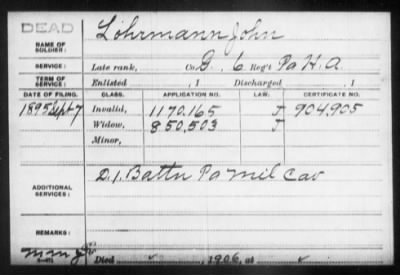 DEAD
NAME OF SOLDIER: Lohrmann John
SERVICE: Late rank, Co. G, 6 Reg't Pa H. A.
TERM OF SERVICE: Enlisted , 1 Discharged , 1
DATE OF FILING. CLASS. APPLICATION NO. LAW. CERTIFICATE NO.
1895 Sept 7 Invalid, 1170,165 J 904,905
Widow, 850,503 J
Minor,
ADDITIONAL SERVICES: D. 1. Battn Pa Mil Cav
REMARKS:
Died , 1906, at